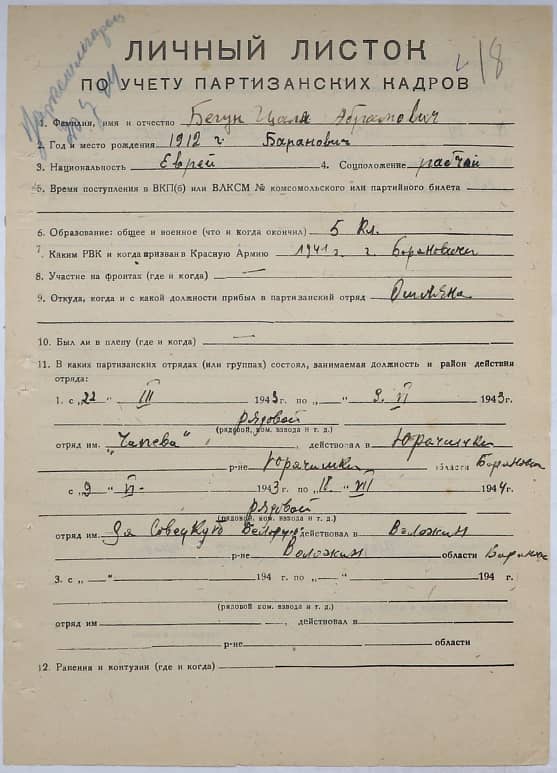 18
ЛИЧНЫЙ ЛИСТОК
ПО УЧЕТУ ПАРТИЗАНСКИХ КАДРОВ
1. Фамилия, имя и отчество Бегун Абрамович
2. Год и место рождения 1912 г. Баранович
3. Национальность Еврей 4. Соцположение рабчай
5. Время поступления в ВКП(б) или ВЛКСМ № комсомольского или партийного билета
6. Образование: общее и военное (что и когда окончил) 5 Кл.
7. Каким РВК и когда призван в Красную Армию 1941 г. г. Борановичи
8. Участие на фронтах (где и когда) —
9. Откуда, когда и с какой должности прибыл в партизанский отряд Ошмяна
10. Был ли в плену (где и когда) —
11. В каких партизанских отрядах (или группах) состоял, занимаемая должность и район действия
отряда:
1. с „22 III 1943 г. по „—“ 9. VI 1943 г.
рядовой
(рядовой, ком. взвода и т. д.)
отряд им. "Чапева" действовал в Юрачишки
р-не Юрачишки области Баранович
с „9 VI- 1943 г. по „18. VII 1944 г.
рядовой
(рядовой, ком. взвода и т. д.)
отряд им. За Совецкую Белорус действовал в Воложин
р-не Воложин области Баранов
3. с „ —“ 194 г. по „—“ 194 г.
(рядовой ком. взвода и т. д.)
отряд им , действовал в
р-не области
12. Ранения и контузии (где и когда)